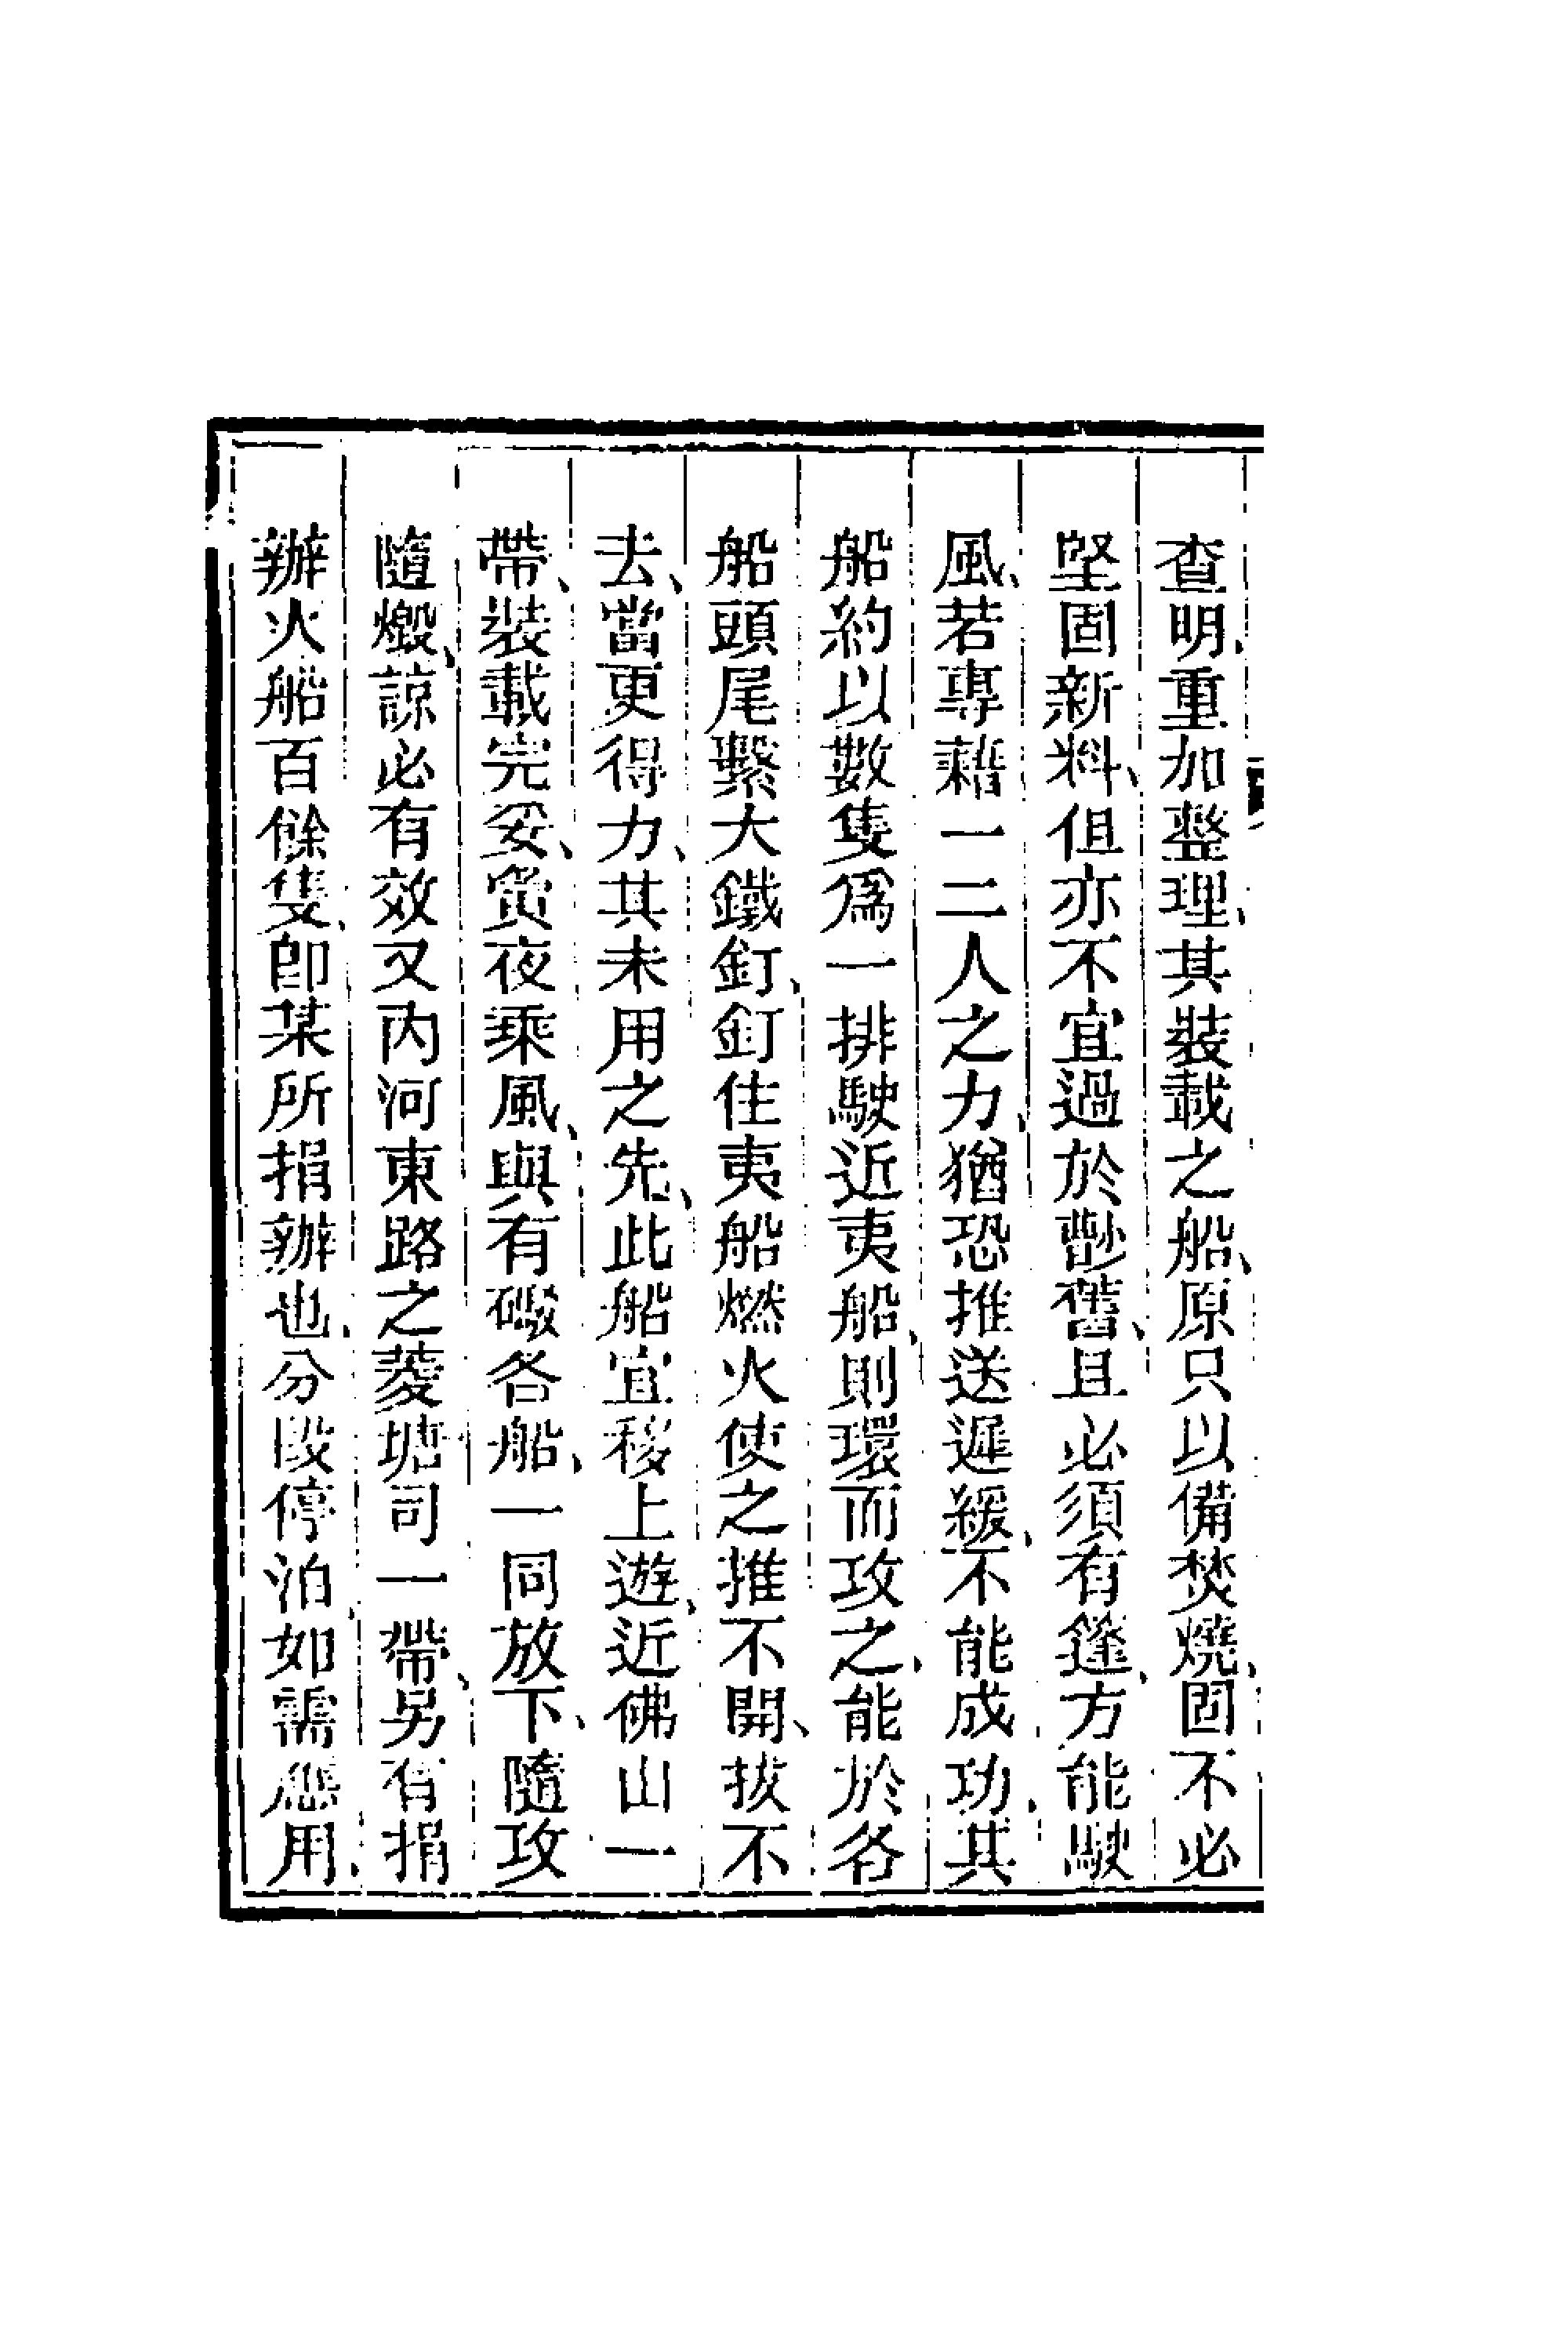 查明、重加整理、其裝載之船、原只以備焚燒、固不必
堅固新料、但亦不宜過於朽舊、且必須有篷、方能駛
風、若專藉一二人之力、猶恐推送遲緩、不能成功、其
船約以數隻爲一排、駛近夷船、則環而攻之、能於各
船頭尾繫大鐵釘、釘住夷船燃火、使之推不開、拔不
去、當更得力、其未用之先、此船宜移上遊、近佛山一
帶、裝載完妥、夤夜乘風、與有礮各船、一同放下、隨攻
隨燬、諒必有效、又內河東路之菱塘司一帶、另有捐
辦火船百餘隻、卽某所捐辦也、分段停泊、如需應用、